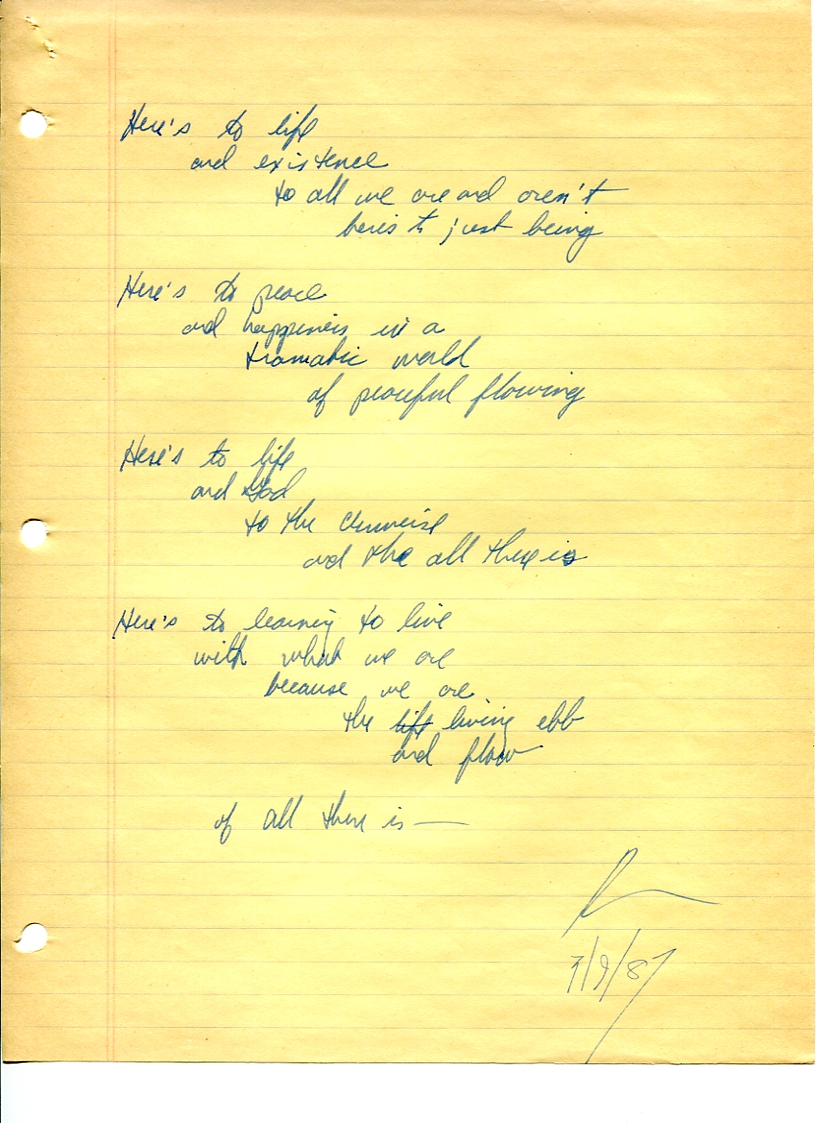 Here's to life
and existence
to all we are and aren't
here's to just being
Here's to peace
and happiness in a
tramatic world
of peaceful flowing
Here's to life
and God
to the
and the all there is
Here's to learning to live
with what we are
because we are
the life living ebb
and flow
of all there is —
7/9/87